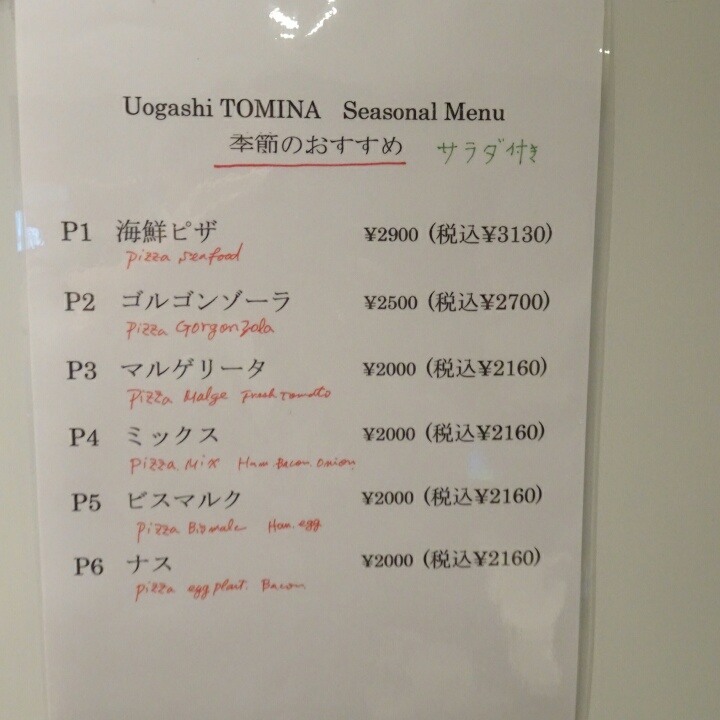 Uogashi TOMINA Seasonal Menu
季節のおすすめ サラダ付き
P1 海鮮ピザ ¥2900 (税込¥3130)
pizza seafood
P2 ゴルゴンゾーラ ¥2500 (税込¥2700)
pizza Gorgonzola
P3 マルゲリータ ¥2000 (税込¥2160)
pizza Malge Fresh Tomato
P4 ミックス ¥2000 (税込¥2160)
pizza Mix Ham. Bacon. Onion
P5 ビスマルク ¥2000 (税込¥2160)
pizza Ham. egg
P6 ナス ¥2000 (税込¥2160)
pizza egg plant. Bacon